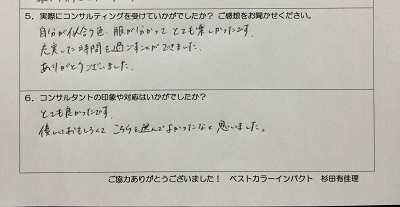 5. 実際にコンサルティングを受けていかがでしたか? ご感想をお聞かせください。
自分が似合う色・服が分かって とても楽しかったです。
充実した時間を過ごすことができました。
ありがとうございました。
6. コンサルタントの印象や対応はいかがでしたか?
とても良かったです。
優しくておもしろくて こちらを選んでよかったなと思いました。
ご協力ありがとうございました! ベストカラーインパクト 杉田有佳理